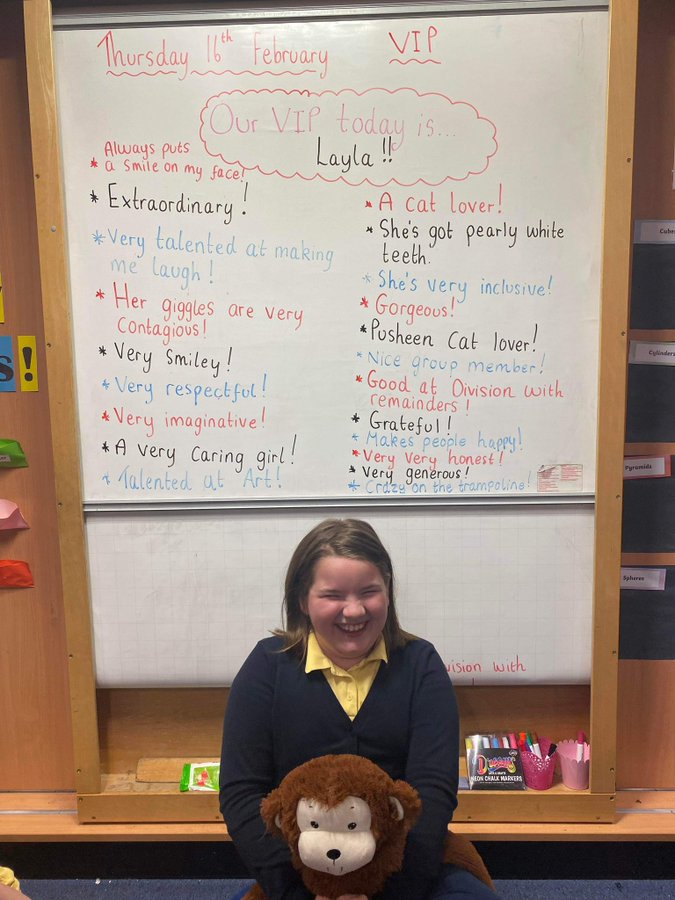 Thursday 16th February
VIP
Our VIP today is...
Layla!!
* Always puts
a smile on my face!
* Extraordinary!
* Very talented at making
me laugh!
* Her giggles are very
contagious!
* Very Smiley!
* Very respectful!
* Very imaginative!
* A very Caring girl!
* Talented at Art!
* A cat lover!
* She's got pearly white
teeth.
* She's very inclusive!
* Gorgeous!
* Pusheen Cat lover!
* Nice group member!
* Good at Division with
remainders!
* Grateful!
* Makes people happy!
* Very very honest!
* Very generous!
* Crazy on the trampoline!
Cylinders
Pyramids
Spheres
with
NEON CHALK MARKERS